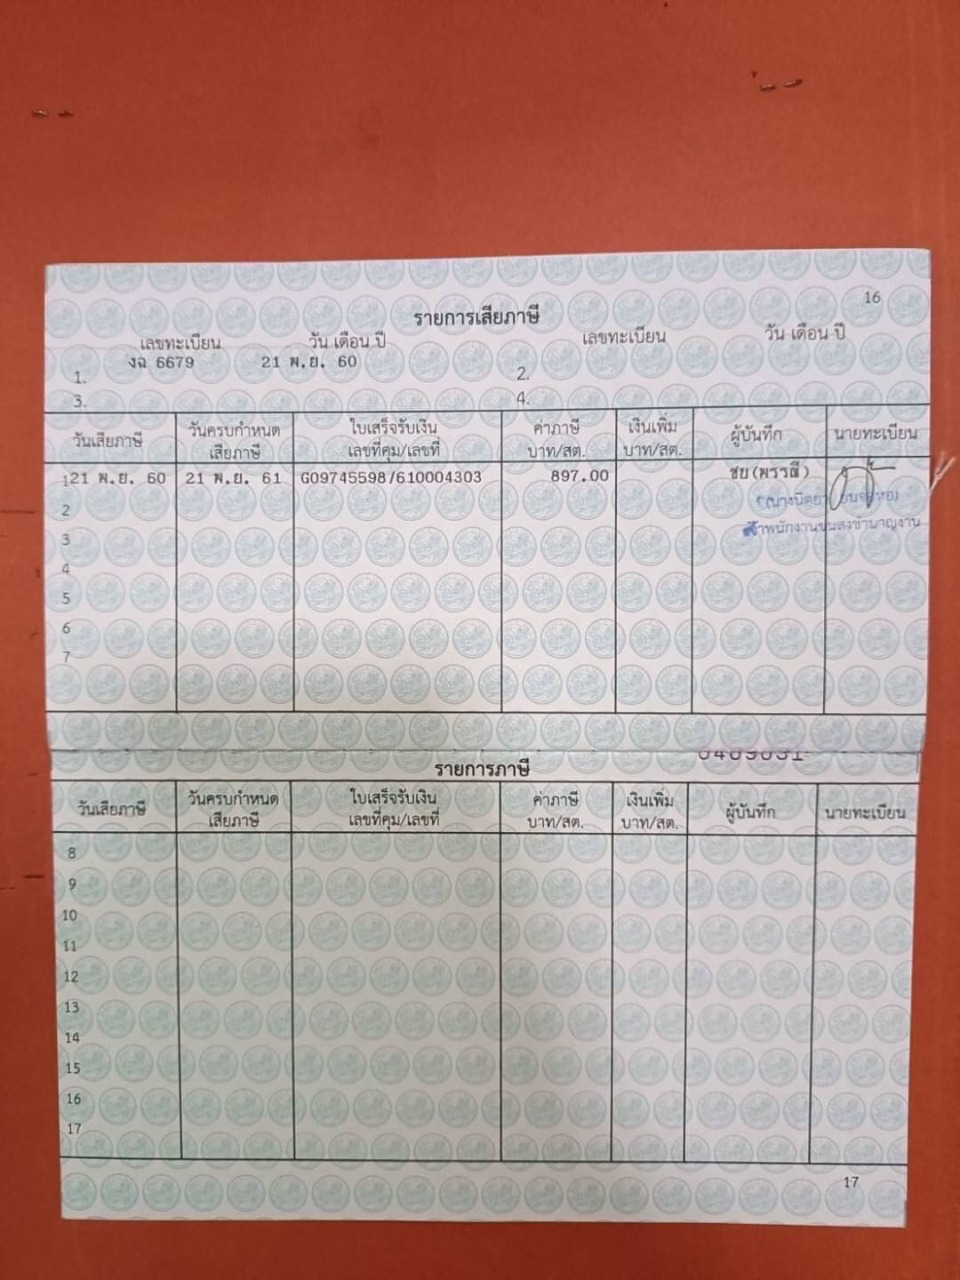 16
รายการเสียภาษี
เลขทะเบียน วัน เดือน ปี เลขทะเบียน วัน เดือน ปี
1. งฉ 6679 21 พ.ย. 60 2.
3. 4.
วันเสียภาษี วันครบกำหนดเสียภาษี ใบเสร็จรับเงิน เลขที่คุม/เลขที่ ค่าภาษี บาท/สต. เงินเพิ่ม บาท/สต. ผู้บันทึก นายทะเบียน
1 21 พ.ย. 60 21 พ.ย. 61 G09745598/610004303 897.00 ชย(พรรณี)
2
เจ้าพนักงานขนส่งชำนาญงาน
3
4
5
6
7
รายการภาษี
วันเสียภาษี วันครบกำหนดเสียภาษี ใบเสร็จรับเงิน เลขที่คุม/เลขที่ ค่าภาษี บาท/สต. เงินเพิ่ม บาท/สต. ผู้บันทึก นายทะเบียน
8
9
10
11
12
13
14
15
16
17
17